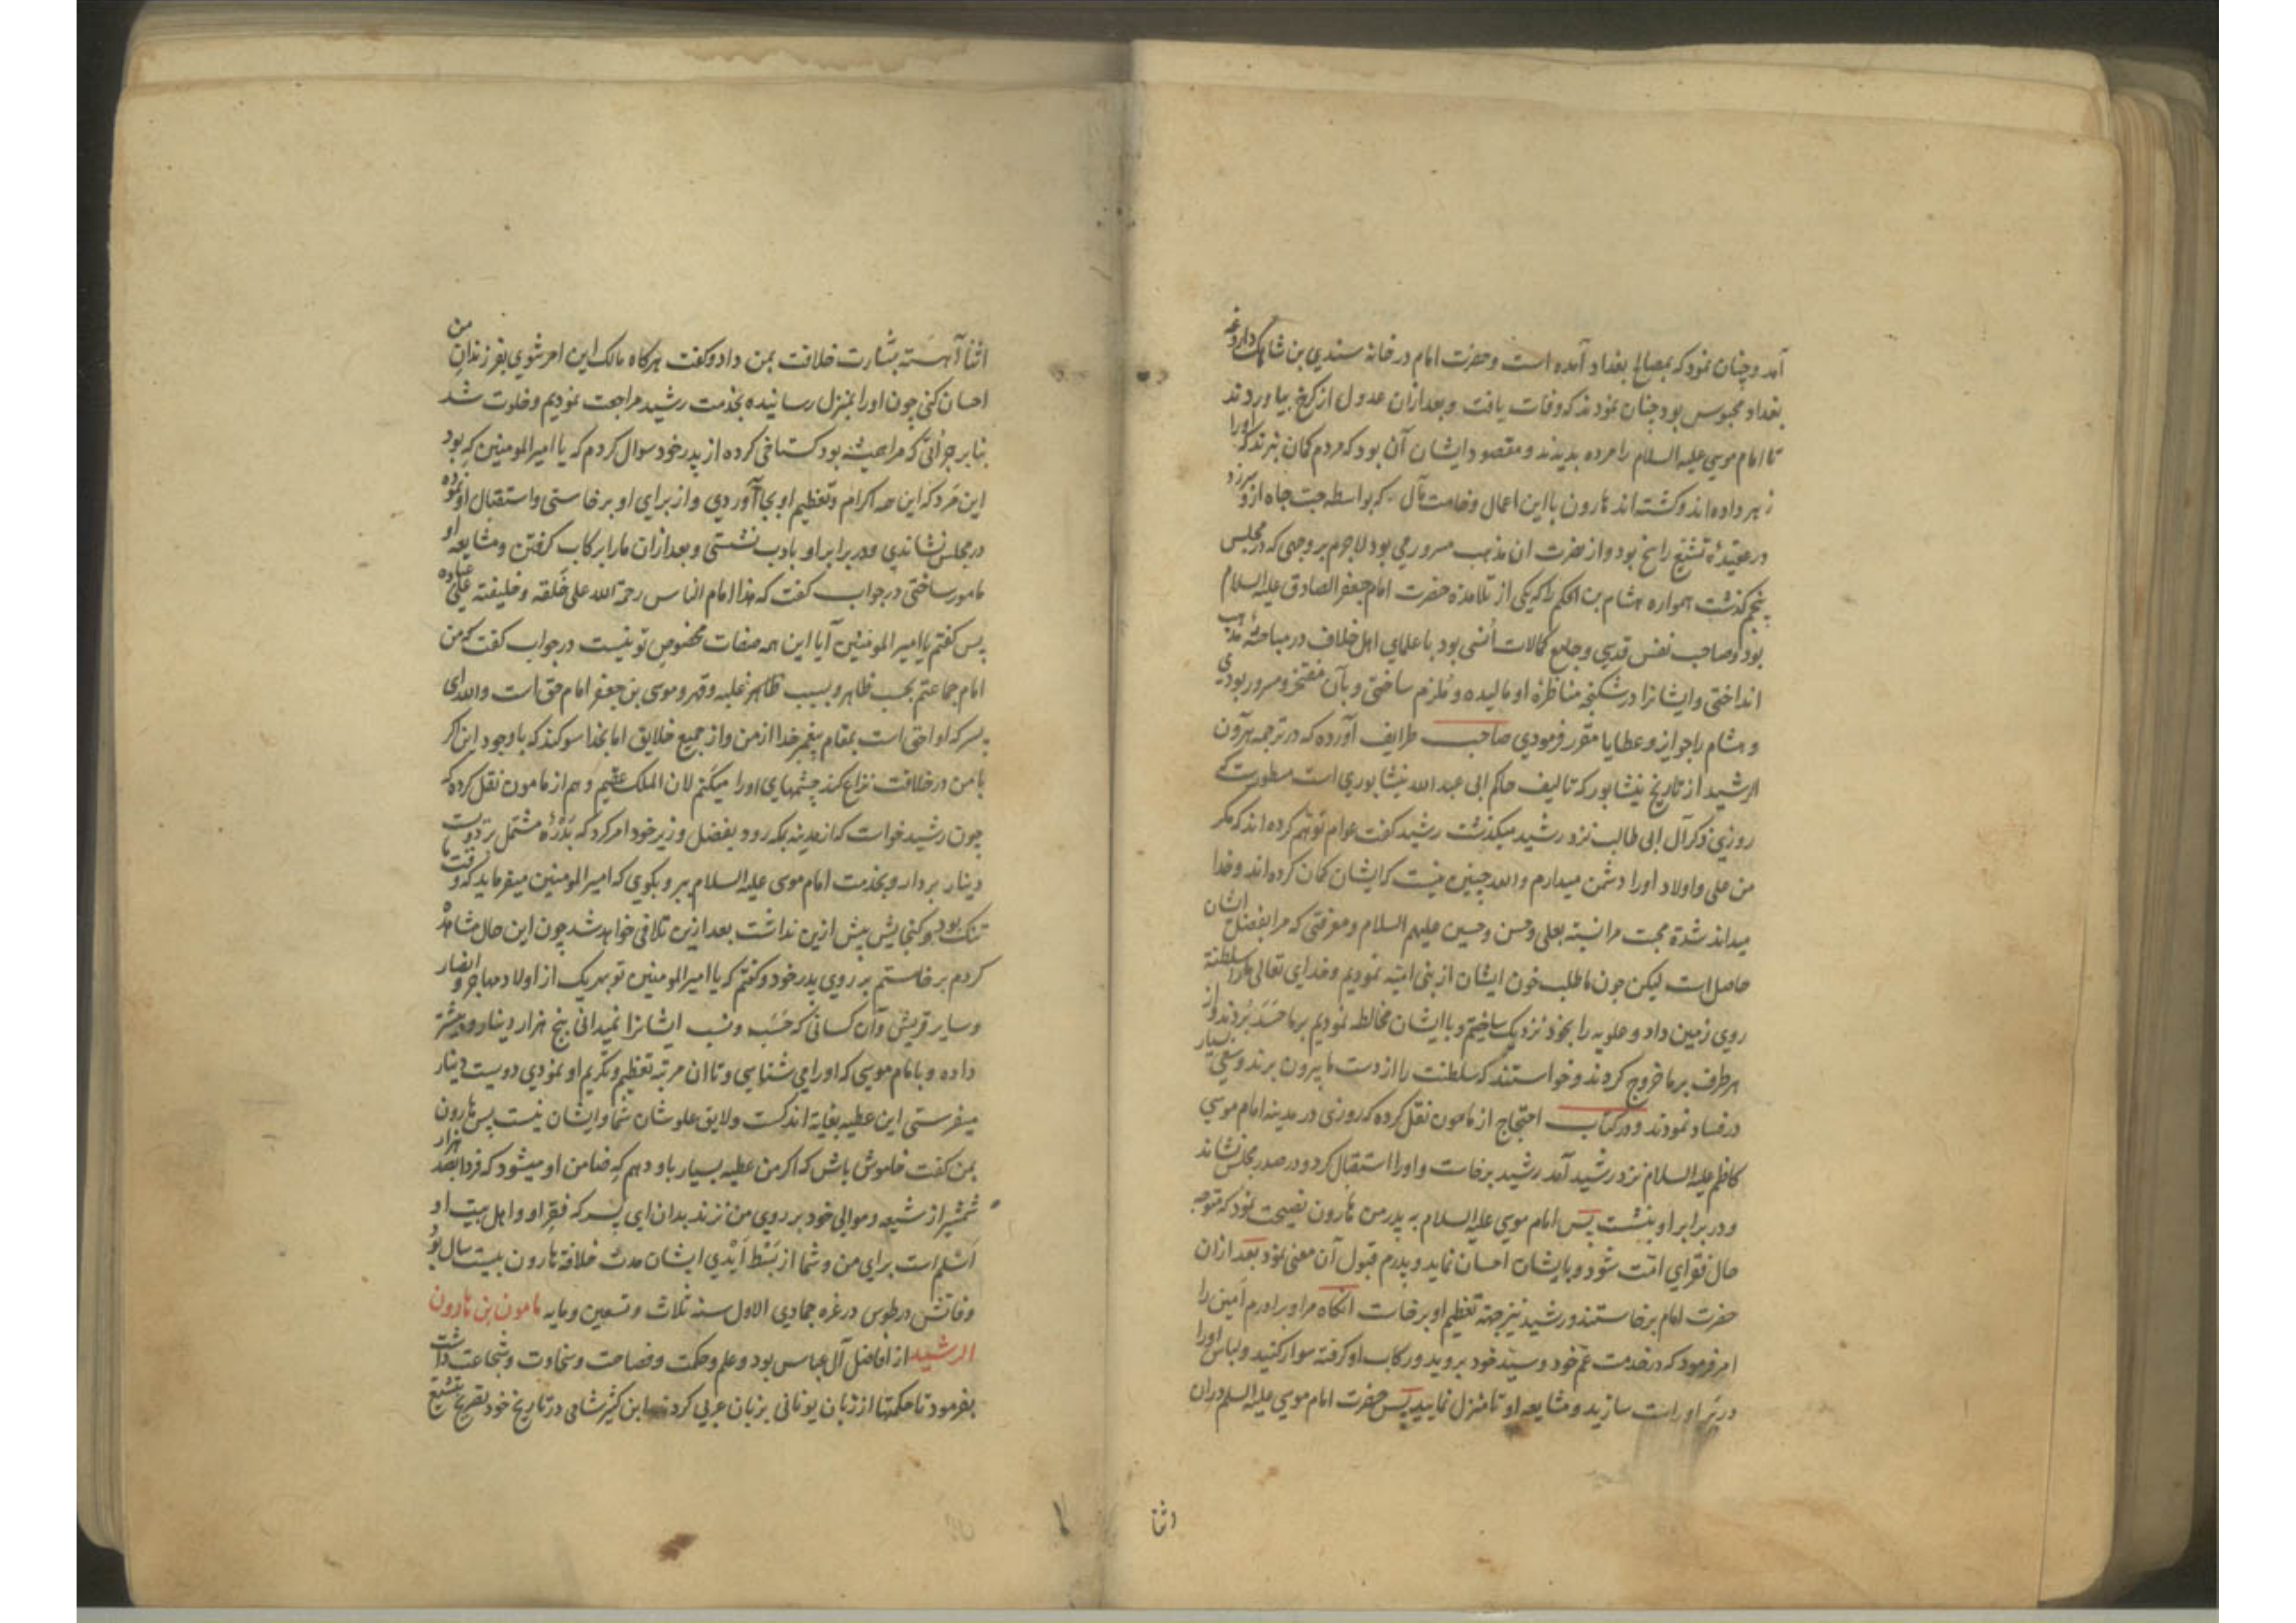 آمد و چنان نمود که بمصالح بغداد آمده است و حضرت امام در خانه سندی بن شاهک داروغه
بغداد محبوس بود چنان نمودند که وفات یافت و بعد ازان عدول از کرخ بیاوردند
تا امام موسی علیه السلام را مرده بدیدند و مقصود ایشان آن بود که مردم کمان نبرند که اورا
زهر داده اند و کشته اند هارون با این اعمال وخامت مآل که بواسطه حب جاه ازو سر زد
در عقیدهٔ تشیع راسخ بود و از نصرت ان مذهب مسرور می بود لاجرم بر وجهی که در مجلس
پنجم کذشت همواره هشام بن الحکم را که یکی از تلامذه حضرت امام جعفر الصادق علیه السلام
بود و صاحب نفس قدسی و جامع کمالات انسی بود با علمای اهل خلاف در مباحثهٔ مذهب
انداختی و ایشانرا در شکنجه مناظرهٔ او مالیده و ملزم ساختی و بآن مفتخر و مسرور بودی
و هشام را جوایز و عطایا مقرر فرمودی صاحب طرایف آورده که در ترجمه هرون
الرشید از تاریخ نیشابور که تالیف حاکم ابی عبد الله نیشابوری است مسطورست که
روزی ذکر آل ابی طالب نزد رشید میکذشت رشید کفت عوام توهم کرده اند که مکر
من علی و اولاد اورا دشمن میدارم و الله چنین نیست که ایشان کمان کرده اند و خدا
میداند شدة محبت مرا نسبة بعلی و حسن و حسین علیهم السلام و معرفتی که مرا بفضل ایشان
حاصل است لیکن چون ما طلب خون ایشان از بنی امیه نمودیم و خدای تعالی ما را سلطنة
روی زمین داد و علویه را بخود نزدیک ساختیم و با ایشان مخالطه نمودیم بر ما حسد بردند و از
هر طرف بر ما خروج کردند و خواستند که سلطنت را از دست ما بیرون برند و سعی بسیار
در فساد نمودند و در کتاب احتجاج از مامون نقل کرده که روزی در مدینه امام موسی
کاظم علیه السلام نزد رشید آمد رشید برخاست و اورا استقبال کرد و در صدر مجلس نشاند
و در برابر او بنشست پس امام موسی علیه السلام به پدر من هارون نصیحت نمود که متوجه
حال فقرای امت شود و بایشان احسان نماید و پدرم قبول آن معنی نمود بعد ازان
حضرت امام برخاستند و رشید نیز جهة تعظیم او برخاست انکاه مرا و برادرم امین را
امر فرمود که در خدمت عم خود و سید خود بروید و رکاب او کرفته سوار کنید و لباس اورا
در بر او راست سازید و مشایعه او تا منزل نمایید پس حضرت امام موسی علیه السلم دران
اثنا آهسته بشارت خلافت بمن داد و کفت هرکاه مالک این امر شوی بفرزندان من
احسان کنی چون اورا بمنزل رسانیده بخدمت رشید مراجعت نمودیم و خلوت شد
بنابر جرأتی که مرا همیشه بود کستاخی کرده از پدر خود سوال کردم که یا امیر المومنین که بود
این مرد که این همه اکرام و تعظیم او بجا آوردی و از برای او برخاستی و استقبال او نموده
در مجلس نشاندی و در برابر او بادب نشستی و بعد ازان ما را برکاب کرفتن و مشایعه او
مامور ساختی در جواب کفت که هذا امام الناس رحمة الله علی خلقه و خلیفته علی عباده
پس کفتم یا امیر المومنین آیا این همه صفات مخصوص تو نیست در جواب کفت که من
امام جماعتم بحسب ظاهر و بسبب ظاهر غلبه و قهر و موسی بن جعفر امام حق است والله ای
پسر که او احق است بمقام پیغمبر خدا از من و از جمیع خلایق اما بخدا سوکند که با وجود این اکر
با من در خلافت نزاع کند چشمهای اورا میکنم لان الملک عقیم و هم از مامون نقل کرده که
چون رشید خواست که از مدینه بمکه رود بفضل وزیر خود امر کرد که بدرهٔ مشتمل بر دویست
دینار بردار و بخدمت امام موسی علیه السلام ببر و بکوی که امیر المومنین میفرماید که وقت ما
تنک بود و کنجایش بیش ازین نداشت بعد ازین تلافی خواهد شد چون این حال مشاهده
کردم برخاستم بر روی پدر خود و کفتم که یا امیر المومنین تو بهریک از اولاد مهاجر و انصار
و سایر قریش و آن کسانی که حسب و نسب ایشانرا نمیدانی پنج هزار دینار و بیشتر
داده و بامام موسی که اورا می شناسی و تا ان مرتبه تعظیم و تکریم او نمودی دویست دینار
میفرستی این عطیه بغایة اندکست و لایق علو شان شما و ایشان نیست پس هارون
بمن کفت خاموش باش که اکر من عطیه بسیار باو دهم که ضامن او میشود که فردا بصد هزار
شمشیر از شیعه و موالی خود بر روی من نزند بدان ای پسر که فقر او و اهل بیت او
اسلم است برای من و شما از بسط ایدی ایشان مدت خلافة هارون بیست سال بود
وفاتش در طوس در غره جمادی الاول سنه ثلاث و تسعین و مایه مامون بن هارون
الرشید از افاضل آل عباس بود و علم و حکمت و فصاحت و سخاوت و شجاعت داشت
بفرمود تا حکمتها از زبان یونانی بزبان عربی کردند ابن کثیر شامی در تاریخ خود تصریح بتشیع